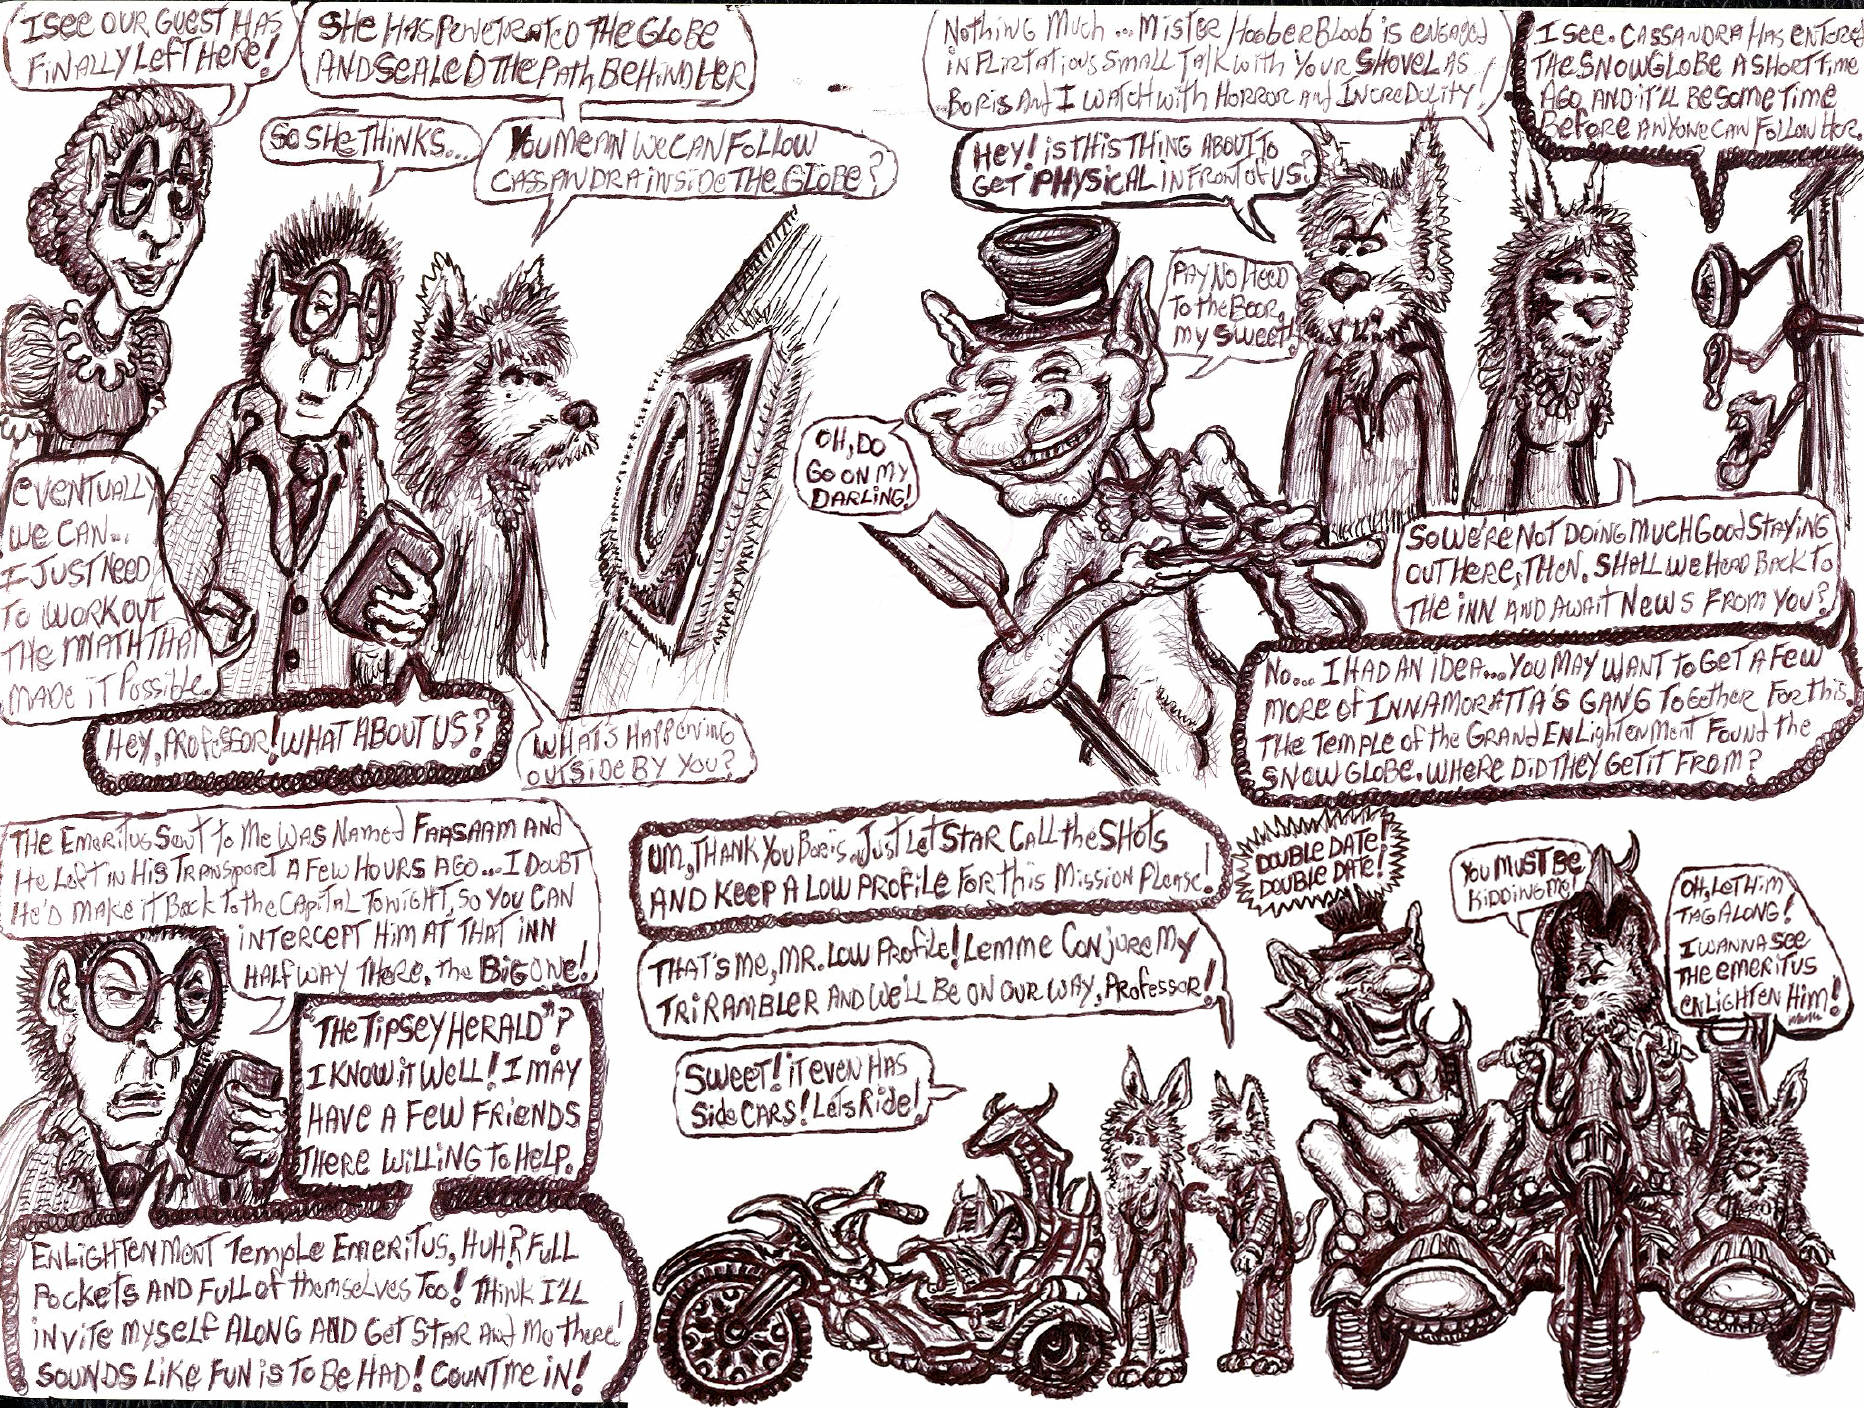 I SEE OUR GUEST HAS
FINALLY LEFT HERE!
SHE HAS PENETRATED THE GLOBE
AND SEALED THE PATH BEHIND HER
SO SHE THINKS...
YOU MEAN WE CAN FOLLOW
CASSANDRA INSIDE THE GLOBE?
EVENTUALLY
WE CAN...
I JUST NEED
TO WORK OUT
THE MATH THAT
MADE IT POSSIBLE.
HEY, PROFESSOR! WHAT ABOUT US?
WHAT'S HAPPENING
OUTSIDE BY YOU?
NOTHING MUCH... MISTER HOOBERBLOOB IS ENGAGED
IN FLIRTATIOUS SMALL TALK WITH YOUR SHOVEL AS
BORIS AND I WATCH WITH HORROR AND INCREDULITY!
HEY! IS THIS THING ABOUT TO
GET PHYSICAL IN FRONT OF US?
PAY NO HEED
TO THE BOOR,
MY SWEET!
OH, DO
GO ON MY
DARLING!
I SEE. CASSANDRA HAS ENTERED
THE SNOWGLOBE A SHORT TIME
AGO, AND IT'LL BE SOME TIME
BEFORE ANYONE CAN FOLLOW HER.
SO WE'RE NOT DOING MUCH GOOD STAYING
OUT HERE, THEN. SHALL WE HEAD BACK TO
THE INN AND AWAIT NEWS FROM YOU?
NO... I HAD AN IDEA... YOU MAY WANT TO GET A FEW
MORE OF INNAMORATTA'S GANG TOGETHER FOR THIS.
THE TEMPLE OF THE GRAND ENLIGHTENMENT FOUND THE
SNOW GLOBE. WHERE DID THEY GET IT FROM?
THE EMERITUS SENT TO ME WAS NAMED FAASAAM AND
HE LEFT IN HIS TRANSPORT A FEW HOURS AGO... I DOUBT
HE'D MAKE IT BACK TO THE CAPITAL TONIGHT, SO YOU CAN
INTERCEPT HIM AT THAT INN
HALFWAY THERE, THE BIG ONE!
"THE TIPSEY HERALD"?
I KNOW IT WELL! I MAY
HAVE A FEW FRIENDS
THERE WILLING TO HELP.
ENLIGHTENMENT TEMPLE EMERITUS, HUH? FULL
POCKETS AND FULL OF THEMSELVES TOO! THINK I'LL
INVITE MYSELF ALONG AND GET STAR AND MO THERE!
SOUNDS LIKE FUN IS TO BE HAD! COUNT ME IN!
UM, THANK YOU BORIS. JUST LET STAR CALL THE SHOTS
AND KEEP A LOW PROFILE FOR THIS MISSION PLEASE!
THAT'S ME, MR. LOW PROFILE! LEMME CONJURE MY
TRIRAMBLER AND WE'LL BE ON OUR WAY, PROFESSOR!
SWEET! IT EVEN HAS
SIDE CARS! LETS RIDE!
DOUBLE DATE!
DOUBLE DATE!
YOU MUST BE
KIDDING ME!
OH, LET HIM
TAG ALONG!
I WANNA SEE
THE EMERITUS
ENLIGHTEN HIM!